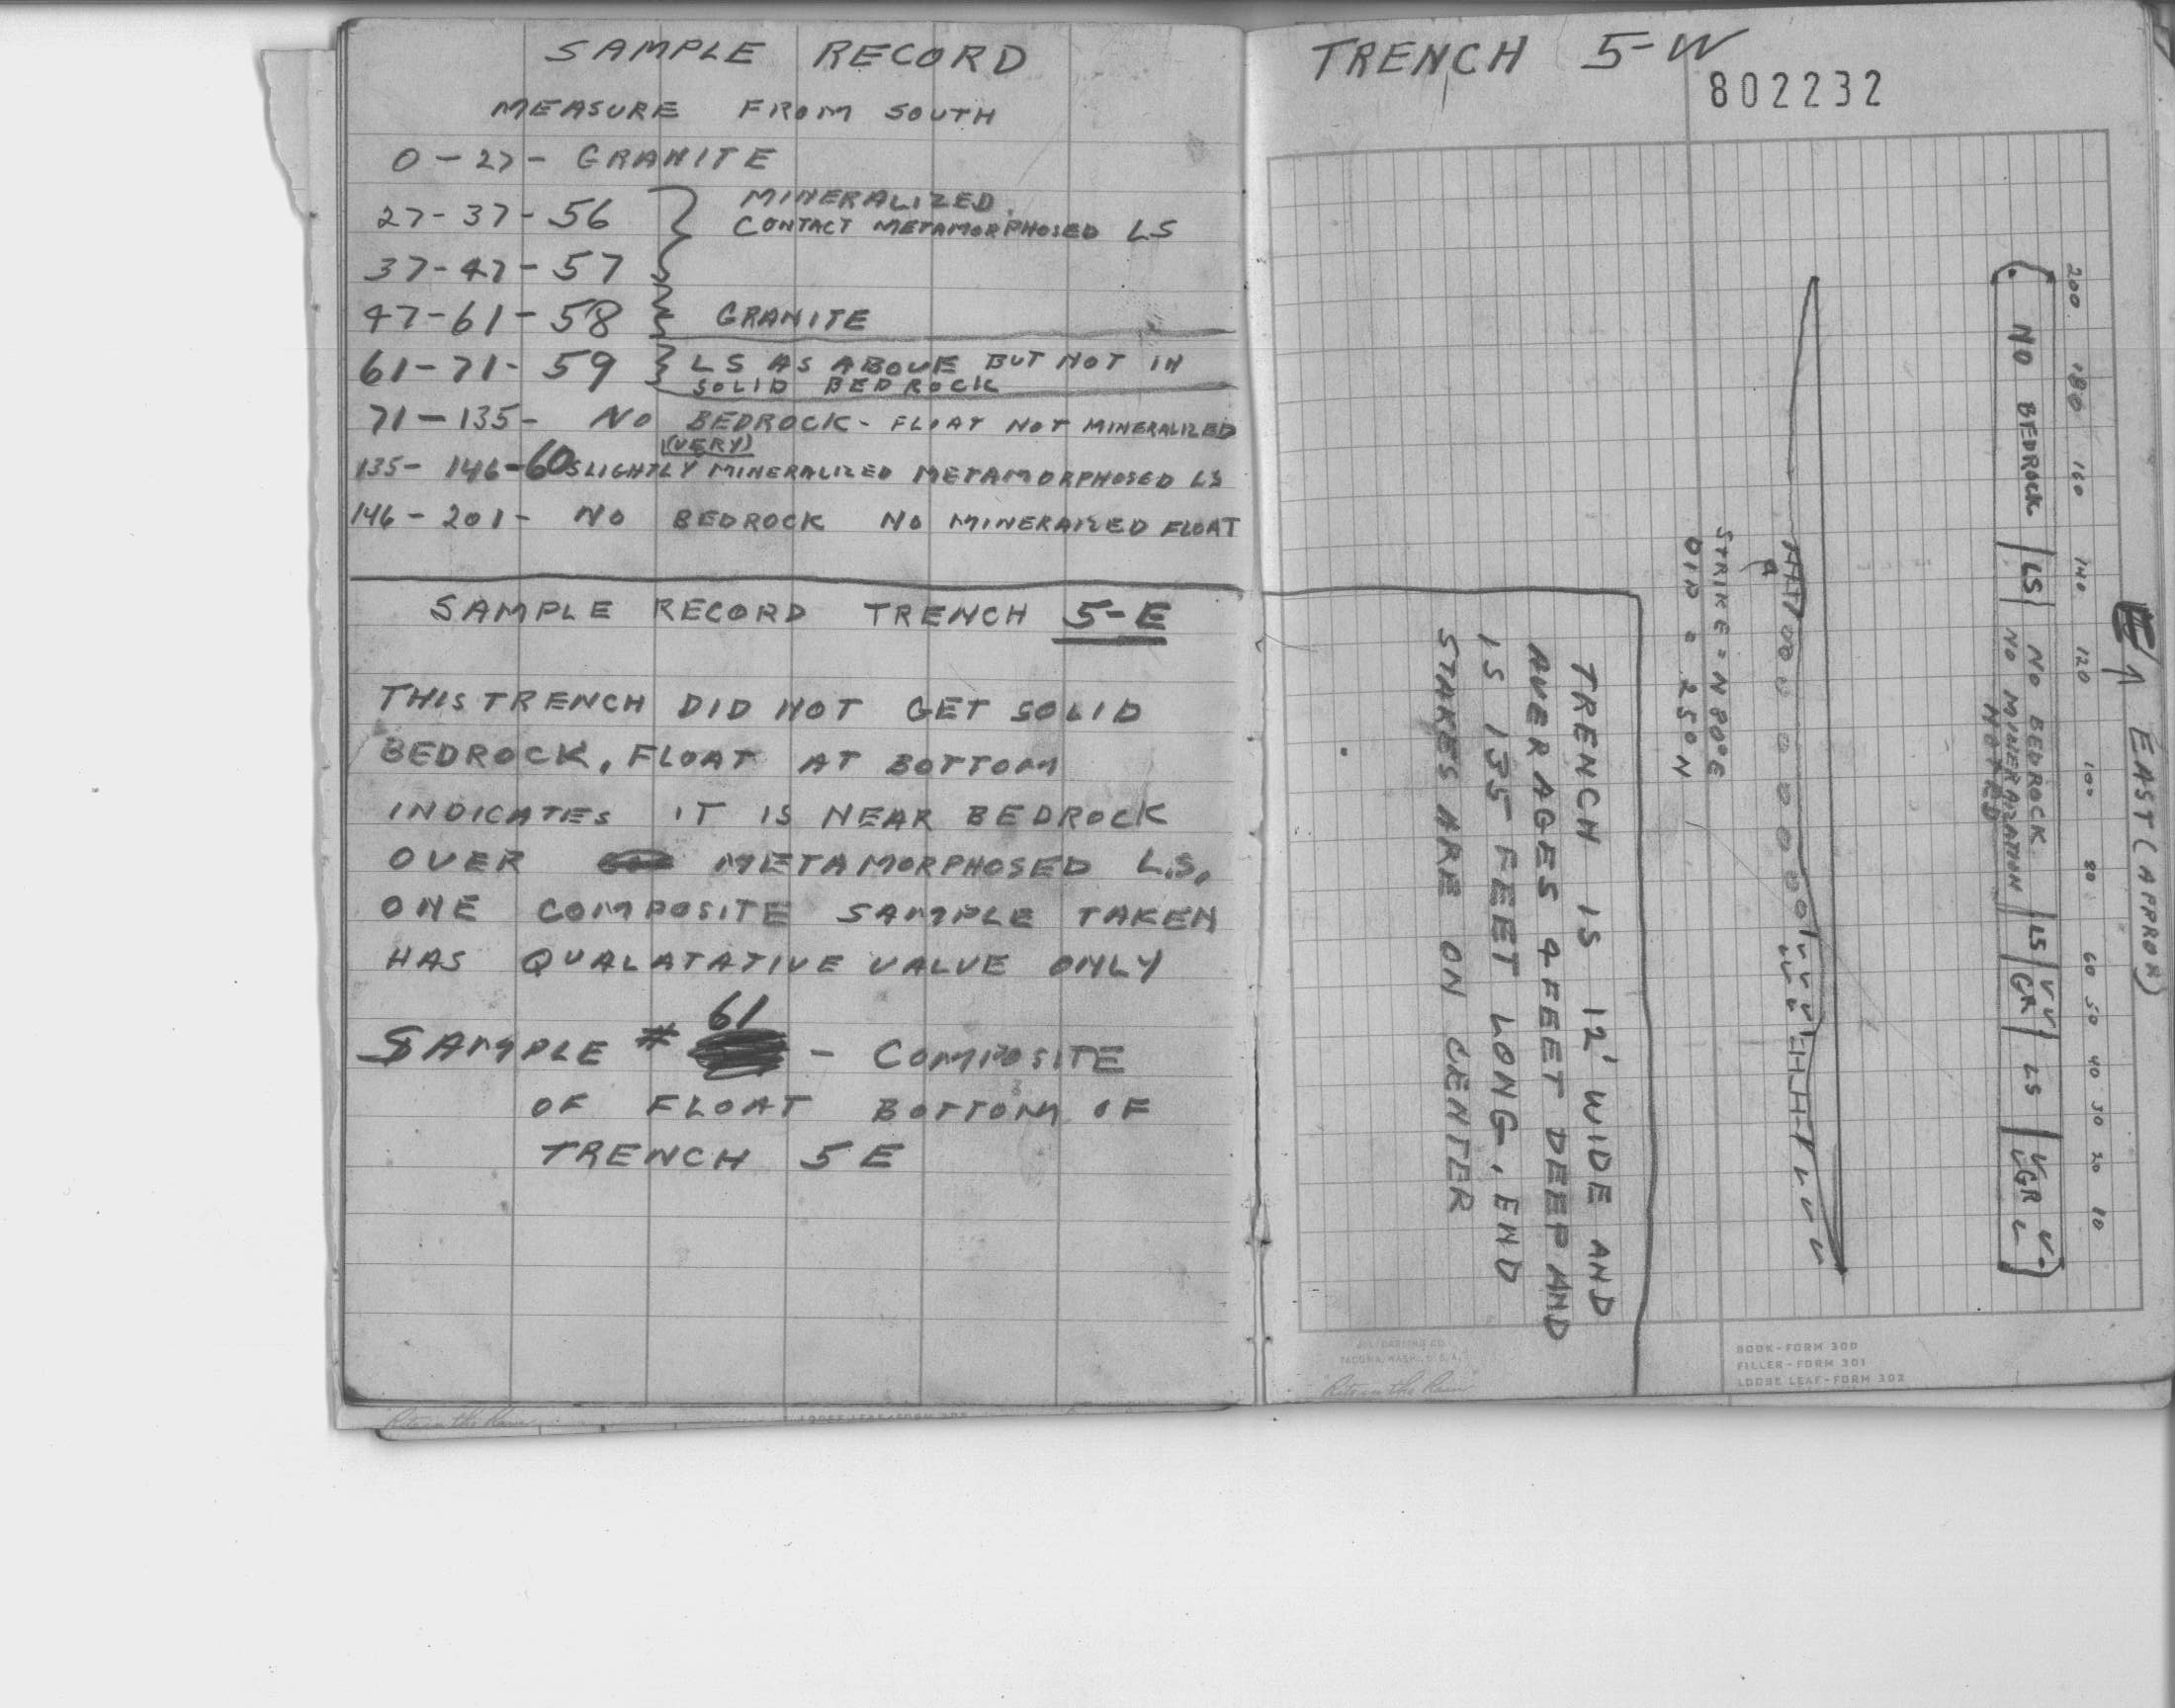 SAMPLE RECORD
MEASURE FROM SOUTH
0-27- GRANITE
27-37-56 } MINERALIZED
CONTACT METAMORPHOSED LS
37-47-57
47-61-58 GRANITE
61-71-59 } LS AS ABOVE BUT NOT IN
SOLID BEDROCK
71-135- NO BEDROCK- FLOAT NOT MINERALIZED
(VERY)
135-146-60 SLIGHTLY MINERALIZED METAMORPHOSED LS
146-201- NO BEDROCK NO MINERALIZED FLOAT
SAMPLE RECORD TRENCH 5-E
THIS TRENCH DID NOT GET SOLID
BEDROCK, FLOAT AT BOTTOM
INDICATES IT IS NEAR BEDROCK
OVER METAMORPHOSED L.S.
ONE COMPOSITE SAMPLE TAKEN
HAS QUALATATIVE VALVE ONLY
61
SAMPLE # - COMPOSITE
OF FLOAT BOTTOM OF
TRENCH 5E
TRENCH 5-W
802232
EAST (APPROX)
200 180 160 140 120 100 80 60 50 40 30 20 10
NO BEDROCK LS NO BEDROCK LS GR LS GR
NO MINERALIZATION
NOTED
STRIKE = N80°E
DIP = 25° N
TRENCH IS 12' WIDE AND
AVERAGES 4 FEET DEEP AND
IS 135 FEET LONG. END
STAKES ARE ON CENTER
TACOMA, WASH., U.S.A.
Rite in the Rain
BOOK-FORM 300
FILLER-FORM 301
LOOSE LEAF-FORM 302
Rite in the Rain